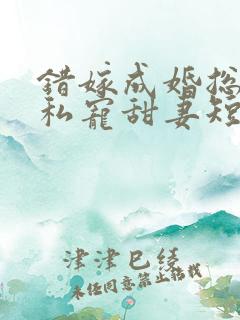 錯嫁成婚
私寵甜妻短
津津巳绫
未经同意禁止转载